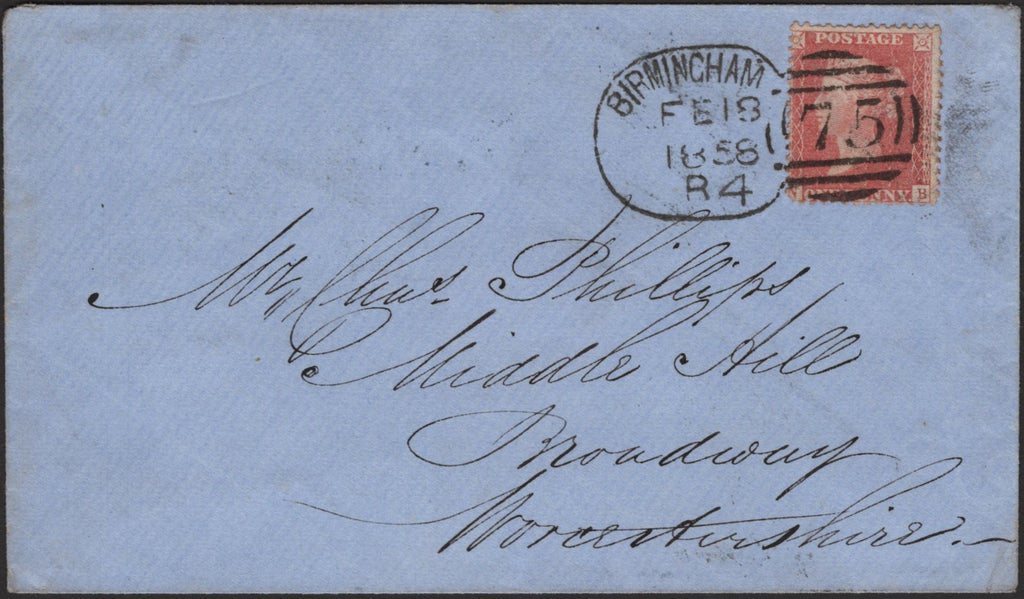 POSTAGE
BIRMINGHAM
FE 18
1858
R4
75
ONE PENNY
B
Mr Chas. Phillips
Middle Hill
Broadway
Worcestershire.